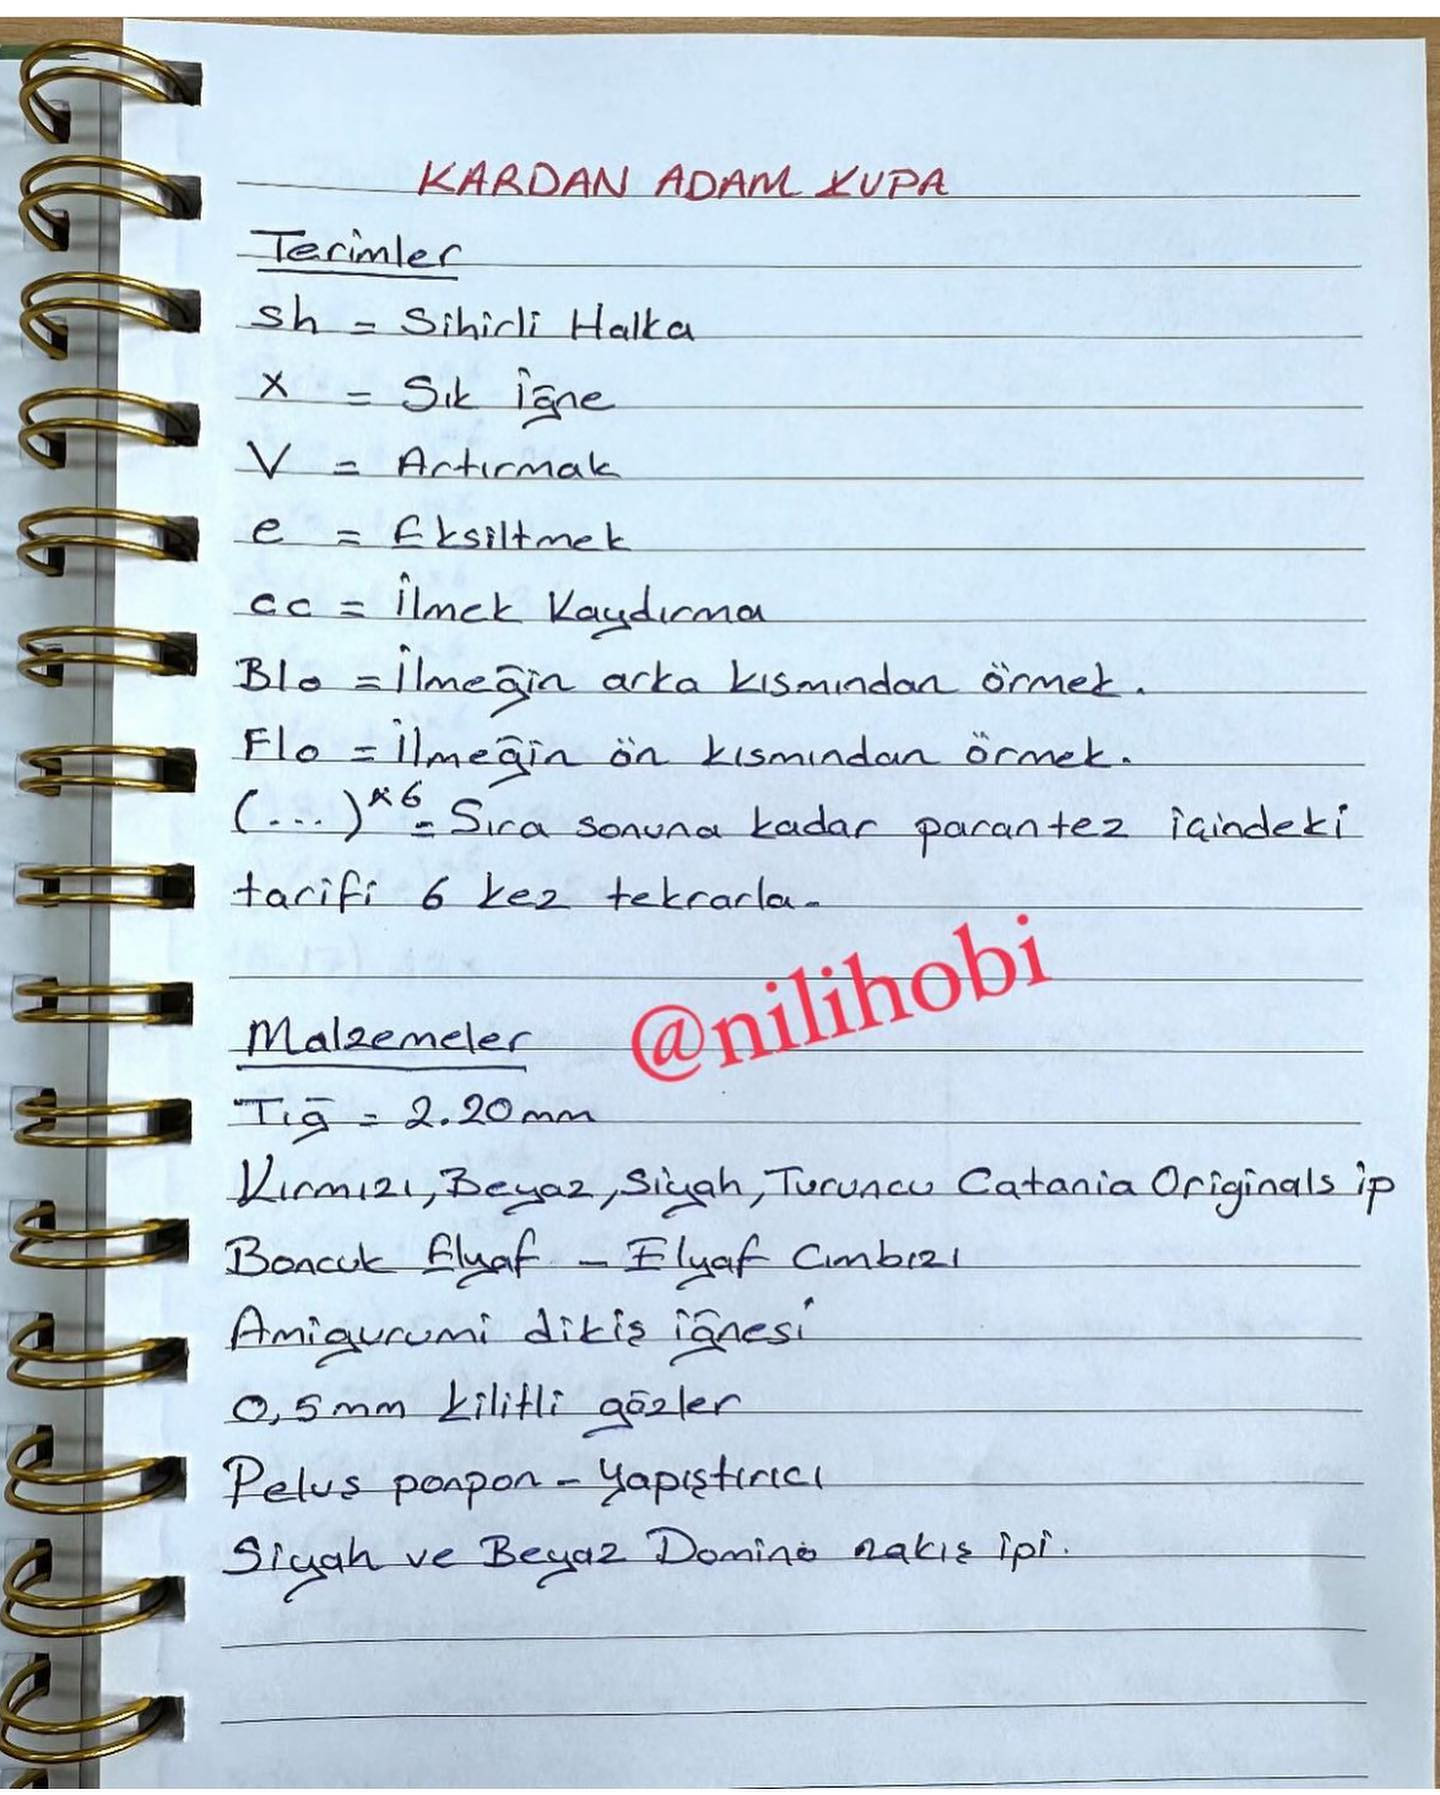 KARDAN ADAM KUPA
Terimler
sh = Sihirli Halka
x = Sık İğne
V = Artırmak
e = Eksiltmek
cc = İlmek Kaydırma
Blo = İlmeğin arka kısmından örmek.
Flo = İlmeğin ön kısmından örmek.
(...)*6 = Sıra sonuna kadar parantez içindeki
tarifi 6 kez tekrarla.
@nilihobi
Malzemeler
Tığ = 2.20mm
Kırmızı, Beyaz, Siyah, Turuncu Catania Originals ip
Boncuk Elyaf - Elyaf Cımbızı
Amigurumi dikiş iğnesi
0,5mm kilitli gözler
Peluş ponpon - Yapıştırıcı
Siyah ve Beyaz Domino nakış ipi.